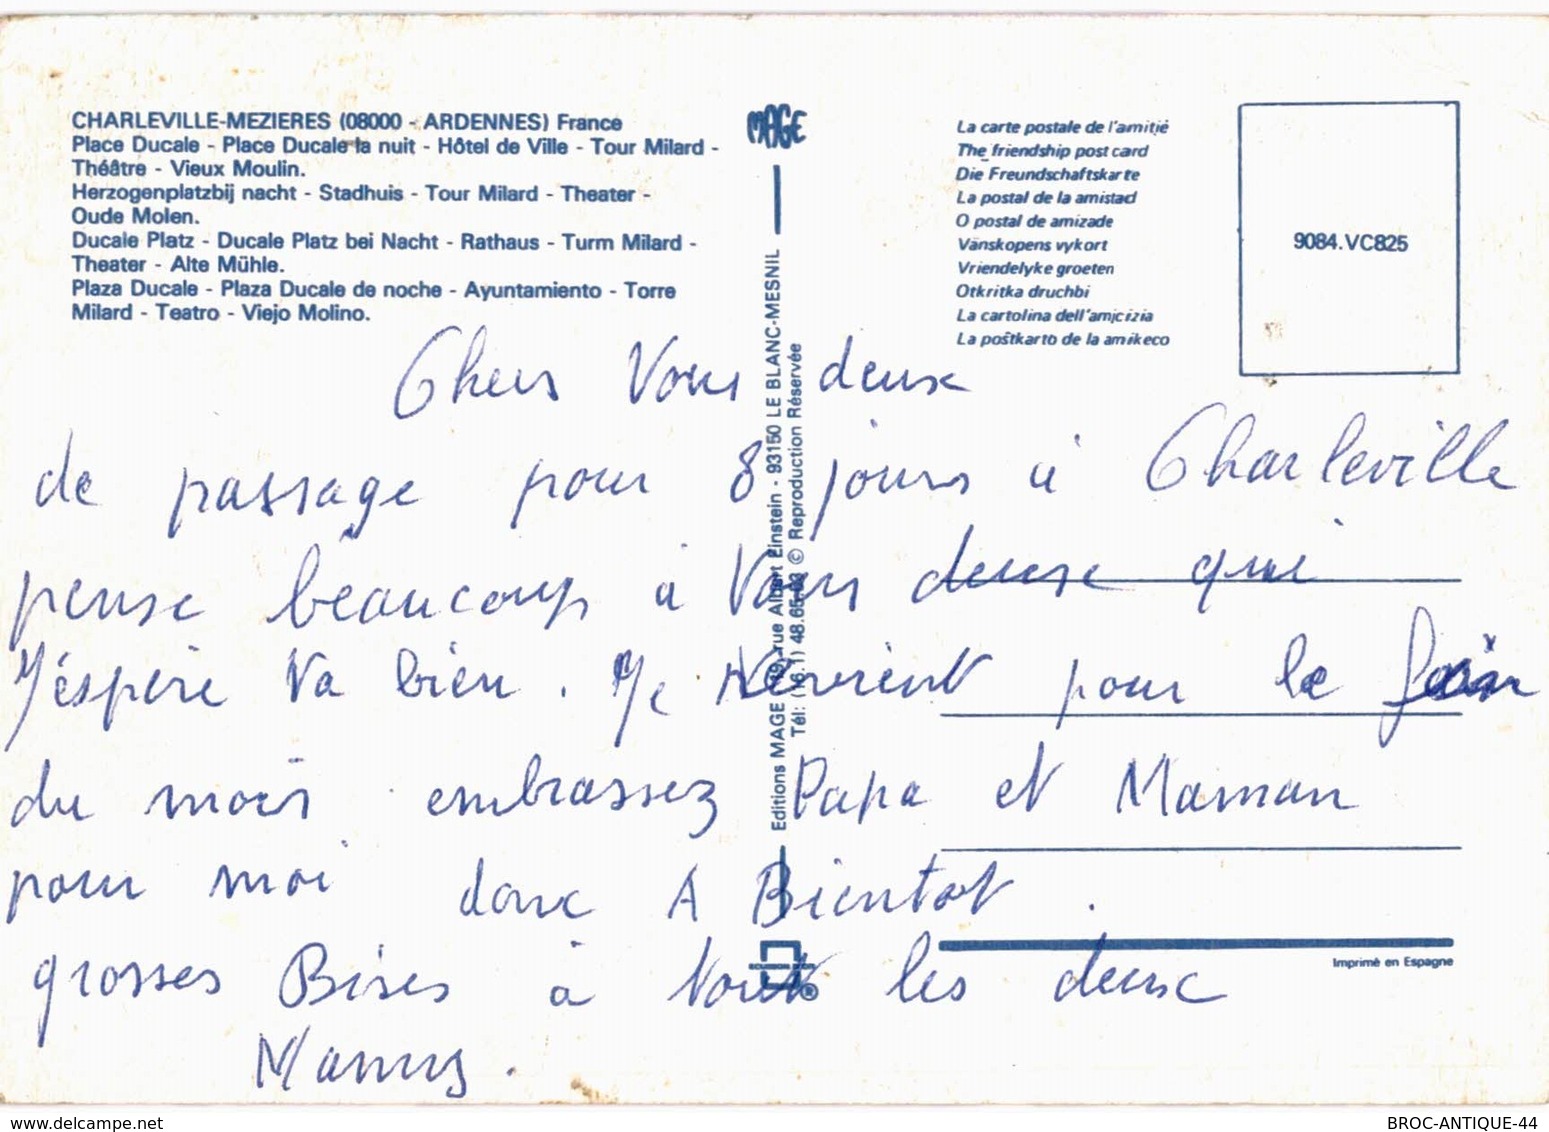 CHARLEVILLE-MEZIERES (08000 - ARDENNES) France
Place Ducale - Place Ducale la nuit - Hôtel de Ville - Tour Milard -
Théâtre - Vieux Moulin.
Herzogenplatzbij nacht - Stadhuis - Tour Milard - Theater -
Oude Molen.
Ducale Platz - Ducale Platz bei Nacht - Rathaus - Turm Milard -
Theater - Alte Mühle.
Plaza Ducale - Plaza Ducale de noche - Ayuntamiento - Torre
Milard - Teatro - Viejo Molino.
MAGE
La carte postale de l'amitié
The friendship post card
Die Freundschaftskarte
La postal de la amistad
O postal de amizade
Vänskopens vykort
Vriendelyke groeten
Otkritka druchbi
La cartolina dell'amicizia
La poŝtkarto de la amikeco
9084.VC825
Editions MAGE rue Albert Einstein - 93150 LE BLANC-MESNIL
Tél: (16.1) 48.65 © Reproduction Réservée
Chers Vous deux
de passage pour 8 jours à Charleville
pense beaucoup à Vous deux qui
J'éspère Va bien. Je revient pour le
du mois embrassez Papa et Maman
pour moi donc A Bientot.
grosses Bises à Vous les deux
®
Imprimé en Espagne
BROC-ANTIQUE-44